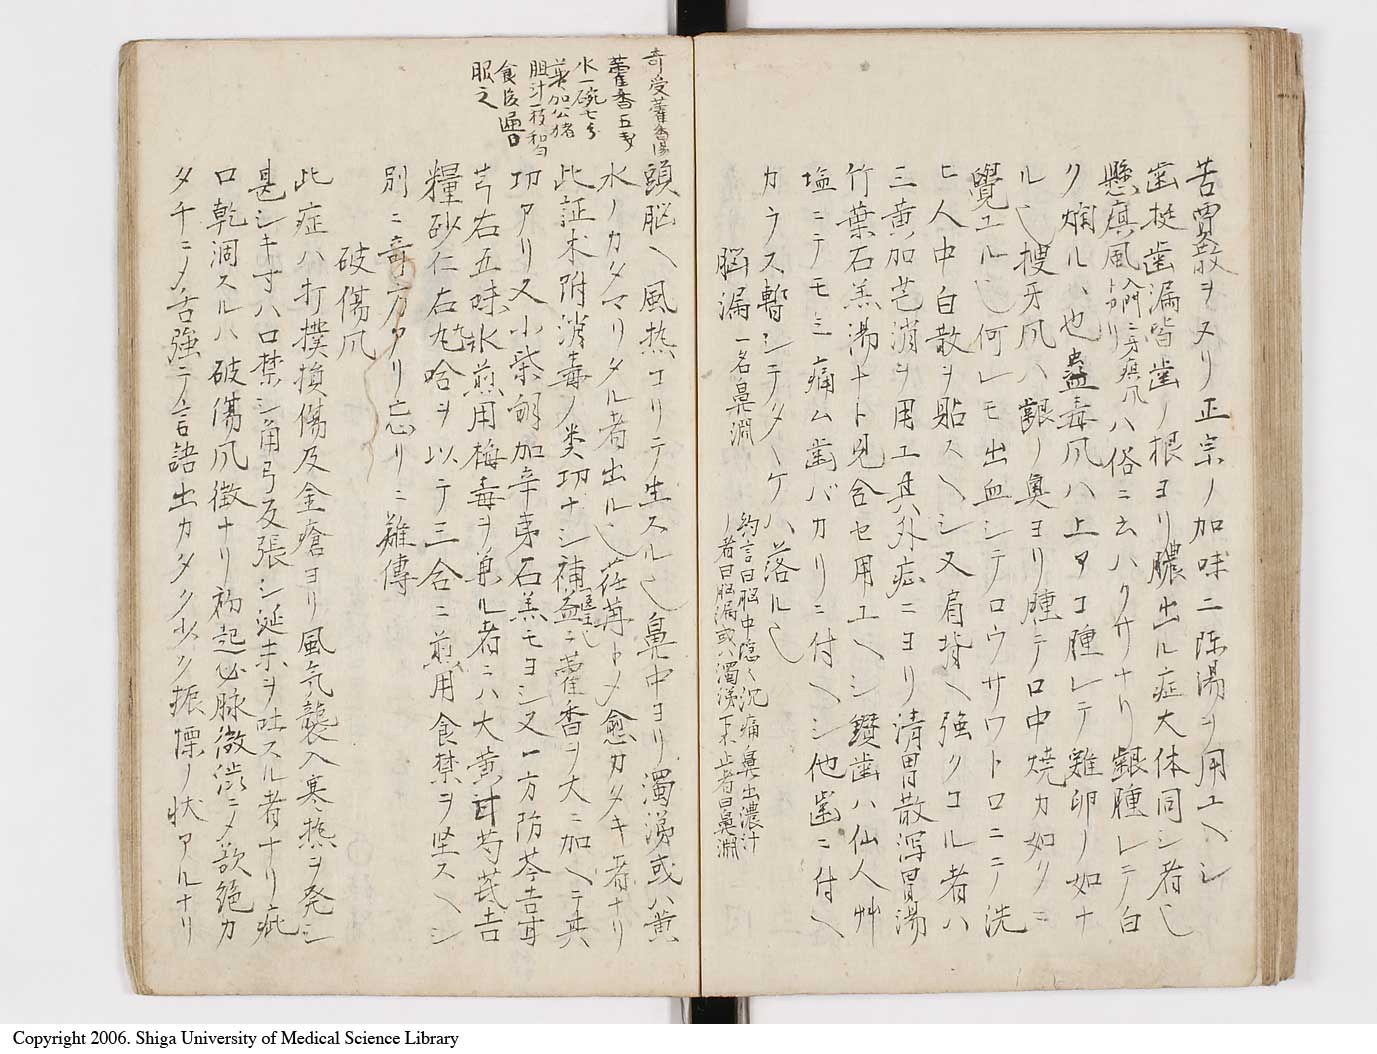 苦買散ヲヌリ正宗ノ加味二陳湯ヲ用ユヘシ
歯挺歯漏皆歯ノ根ヨリ膿出ル症大体同シ者也
懸疳風入門ニ牙疳風トアリハ俗ニ云ハクサナリ齦腫レテ白
ク爛ル也蟲毒风ハ上ヲコ腫レテ雞卵ノ如ナ
ル也搜牙风ハ齦ノ奥ヨリ腫テ口中焼カ如ク
覺ユル也何レモ出血シテロウサワトロニテ洗
ヒ人中白散ヲ貼スヘシ又肩背ヘ強クコル者ハ
三黄加芒消ヲ用エ其外症ニヨリ清胃散瀉胃湯
竹葉石羔湯ナト見合セ用ユヘシ鑽歯ハ仙人艸
塩ニテモミ痛ム歯バカリニ付ヘシ他歯ニ付ヘ
カラス暫シテタヽケハ落ル也
脳漏 一名鼻淵
約言曰脳中隠々沉痛鼻出濃汁
ノ者曰脳漏或ハ濁涕下不止者曰鼻淵
奇受藿香湯
藿香五戔
水一碗七分
煎加公猪
胆汁一枝和匀
食后通口
服之
頭脳ヘ風热コリテ生スル也鼻中ヨリ濁涕或ハ黄
水ノカタマリタル者出ル也荏苒トメ愈カタキ者ナリ
此証木附消毒ノ类功ナシ補益ニ藿香ヲ大ニ加ヘテ其
功アリ又小柴胡加辛夷石羔モヨシ又一方防芩吉甘
芎右五味水煎用梅毒ヲ兼ル者ニハ大黄甘芍芪吉
糧砂仁右九味ヲ以テ三合ニ煎用食禁ヲ坚スヘシ
別ニ奇方アリ忘リニ難傳
破傷风
此症ハ打撲損傷及金瘡ヨリ風气襲入寒热ヲ発シ
甚シキ寸ハ口禁シ角弓反張シ涎末ヲ吐スル者ナリ疵
口乾涸スルハ破傷风徴ナリ初起必脉微澁ニメ欲絶カ
タチニメ舌強テ言語出カタク少ク振慄ノ状アルナリ